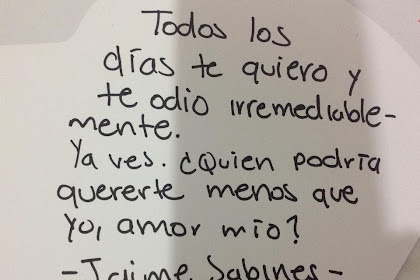 Todos los
días te quiero y
te odio irremediable-
mente.
Ya ves. ¿Quien podría
quererte menos que
yo, amor mío?
-Jaime Sabines-